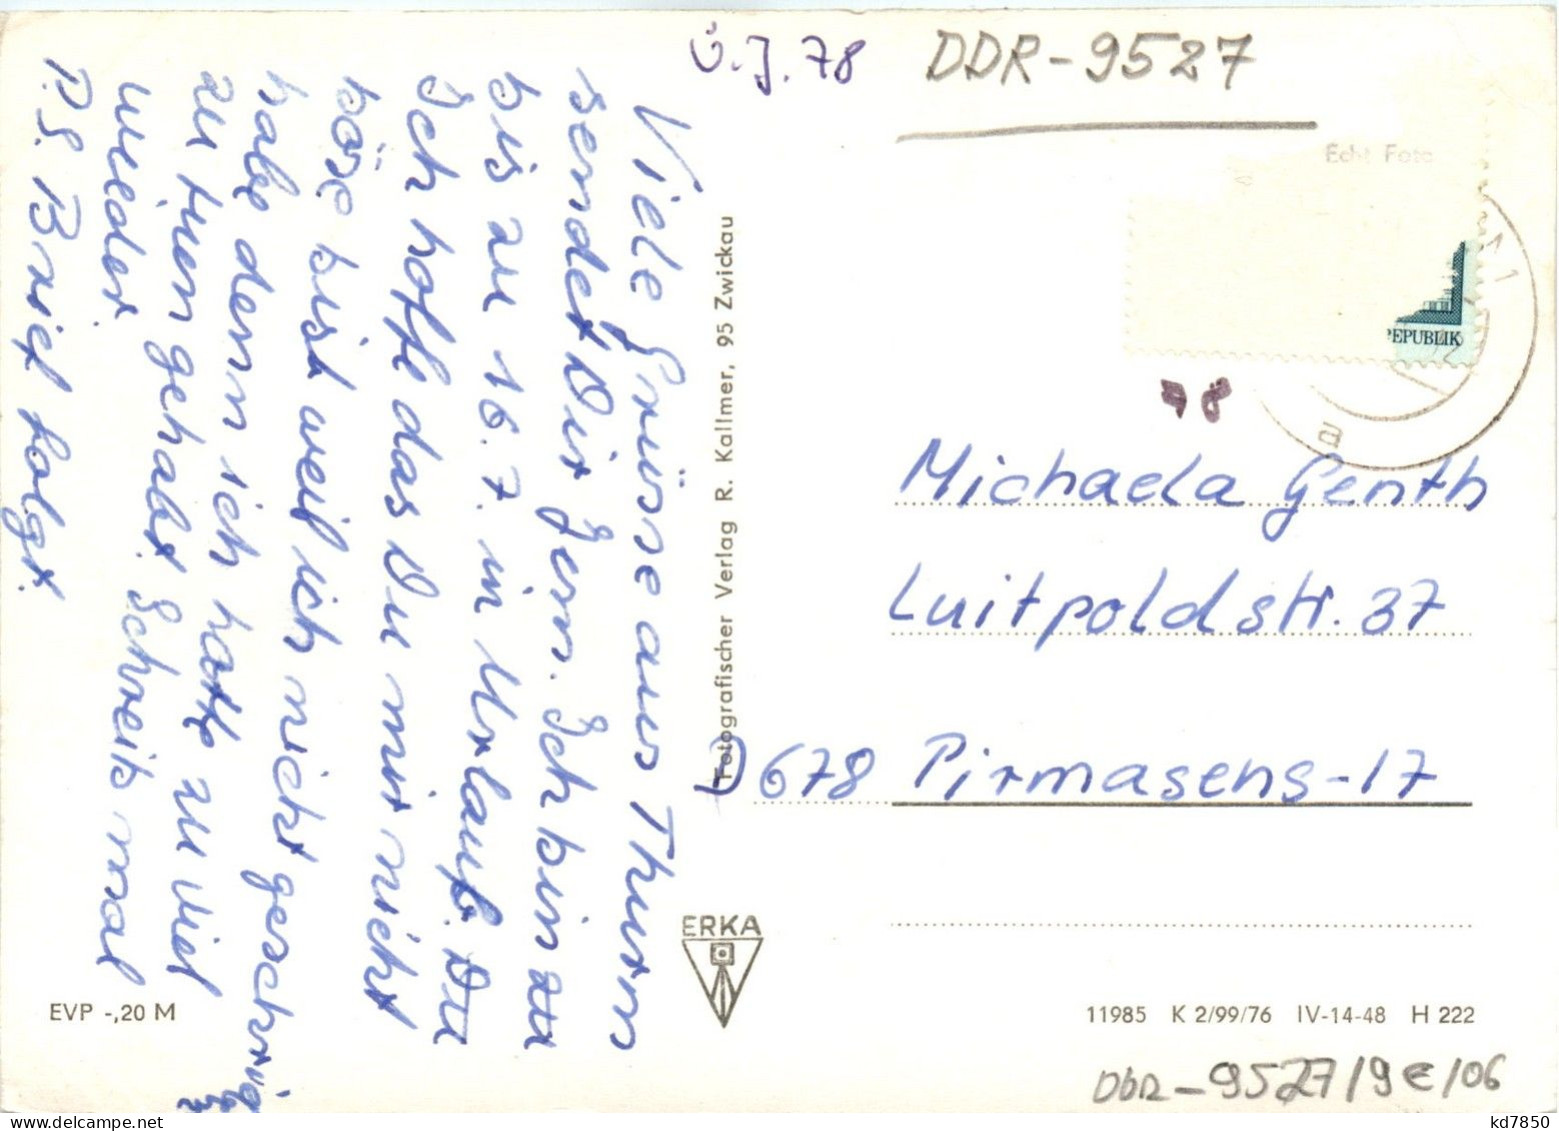 Ü. J. 78
DDR-9527
Echt Foto
REPUBLIK
a
78
Viele Grüsse aus Thurm
sendet Dir Jern. Ich bin
bis zu 16.7. in Urlaub. Du
Ich hoffe das Du mir nicht
böse bist weil ich nicht geschrieb
habe denn ich hatte zu viel
zu tuen gehabt. Schreib mal
wieder
P.S. Brief folgt.
Fotografischer Verlag R. Kallmer, 95 Zwickau
Michaela Genth
Luitpoldstr. 37
D 678 Pirmasens-17
ERKA
EVP -,20 M
11985 K 2/99/76 IV-14-48 H 222
DDR-9527/9€/06
kd7850